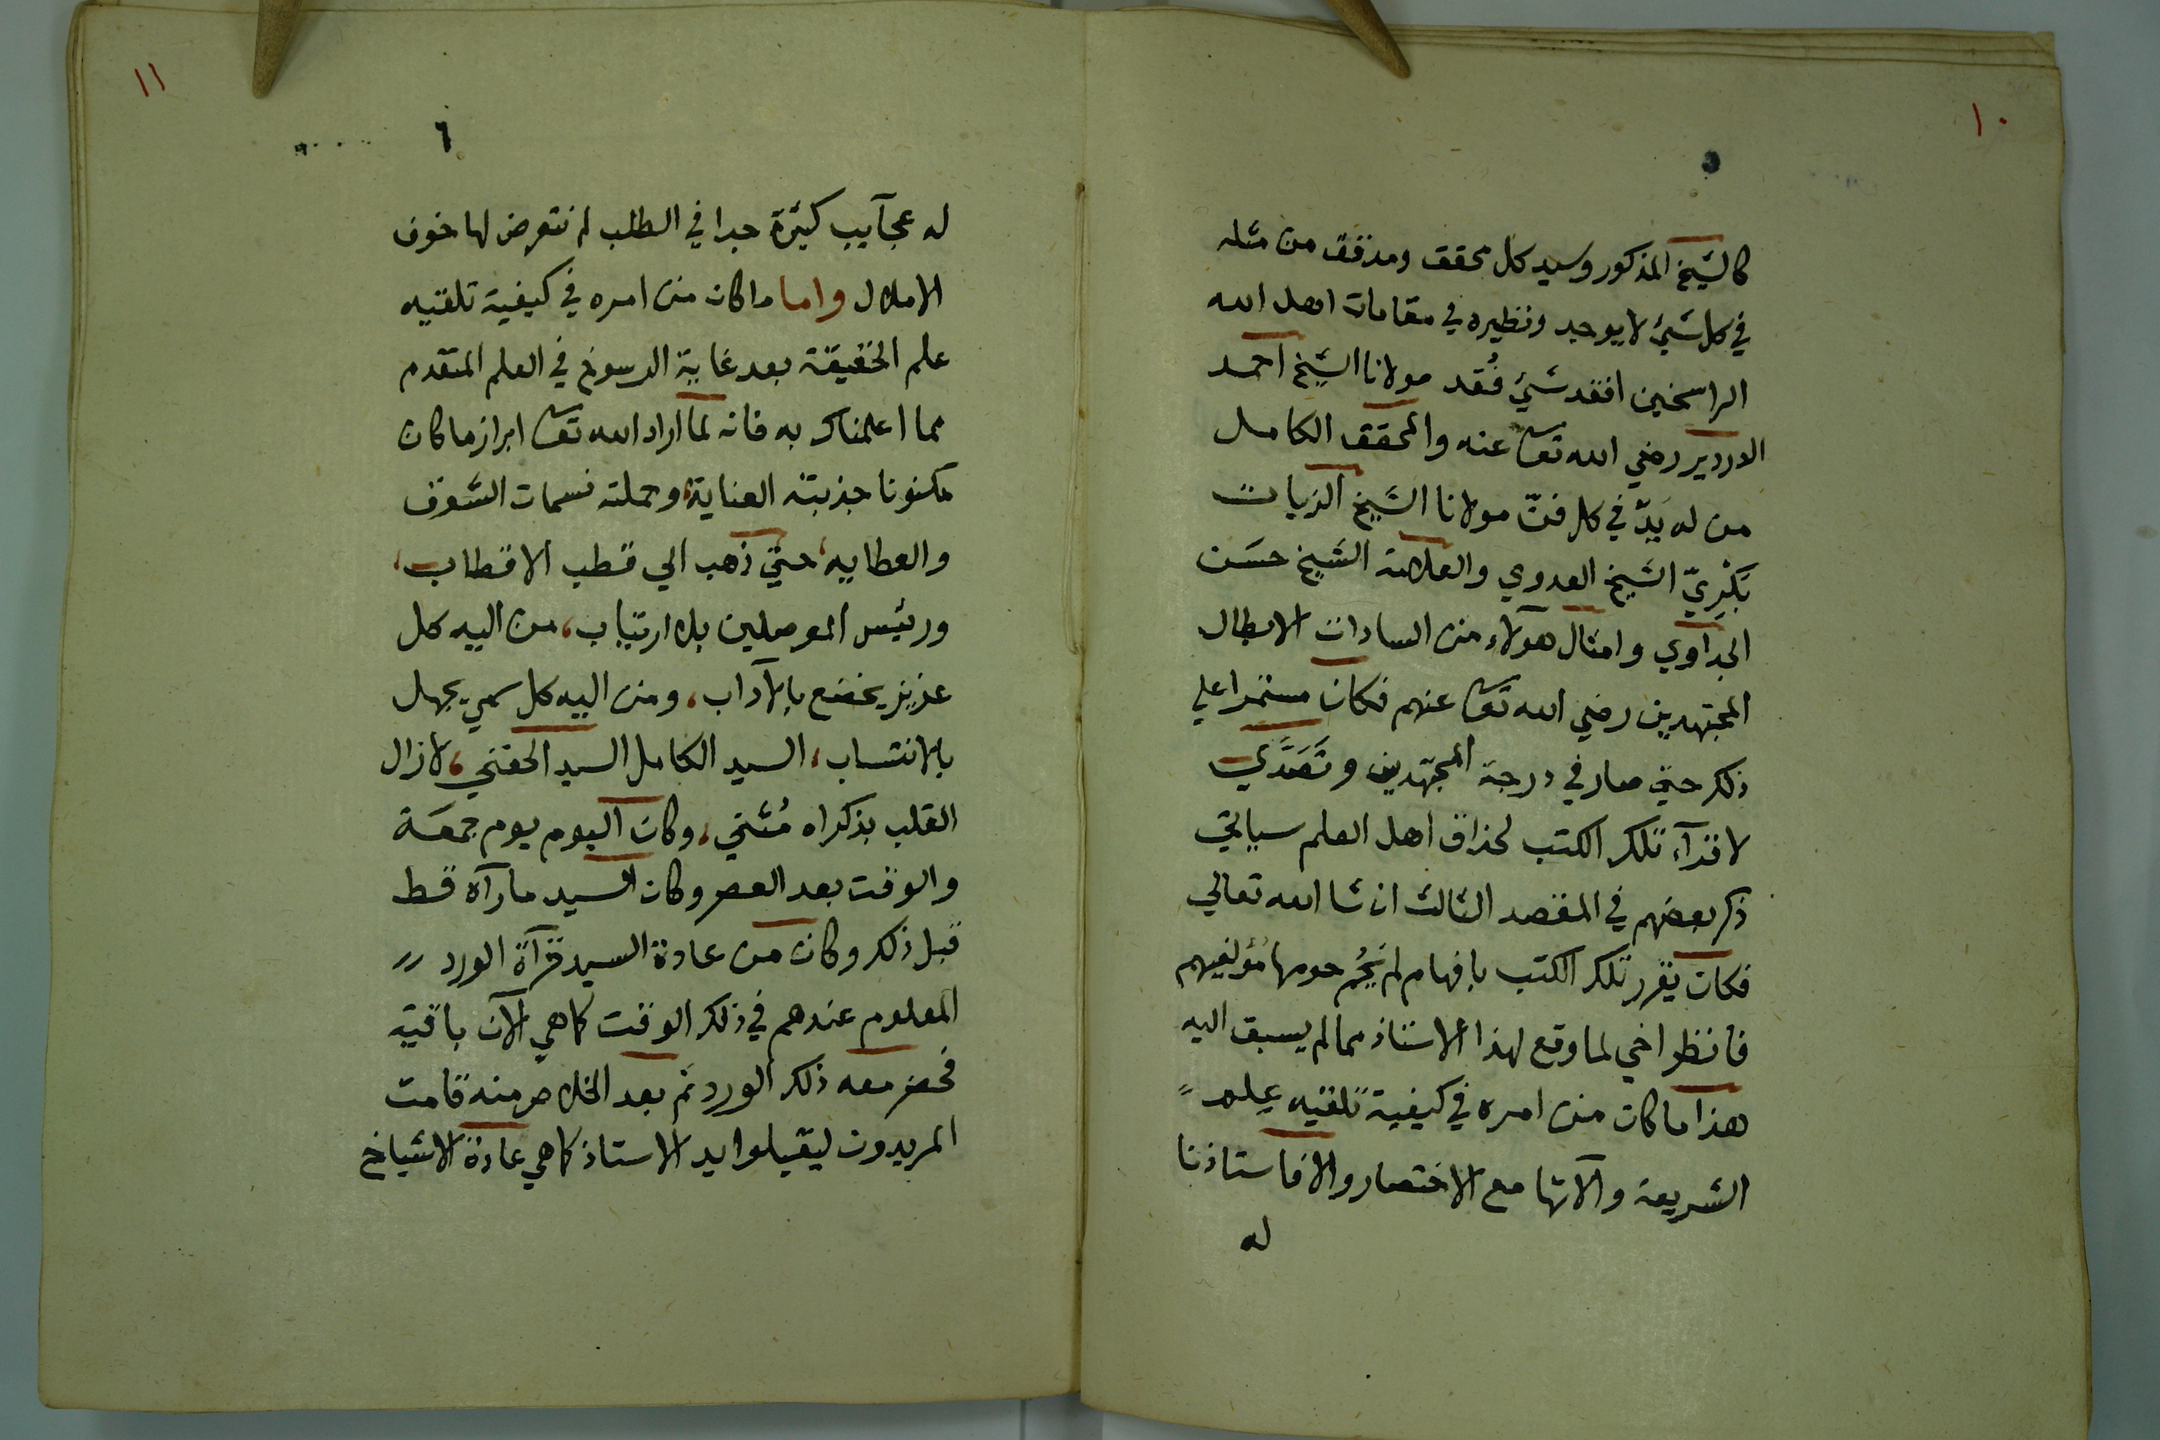 ١٠
٥
كالشيخ المذكور وسيد كل محقق ومدقق من مثله
في كل شيئ لا يوجد ونظيره في مقامات اهل الله
الراسخين افقد شيئ فُقد مولانا الشيخ احمد
الدردير رضي الله تعا عنه والمحقق الكامل
من له يَدٌ في كل فنّ مولانا الشيخ الزيات
بَكْرِيّ الشيخ العدوي والعلامة الشيخ حسَن
الجداوي وامثال هولآء من السادات الابطال
المجتهدين رضي الله تعا عنهم فكان مستمرا علي
ذلك حتي صار في درجة المجتهدين وتَصَدَّي
لاقرآء تلك الكتب لحذاق اهل العلم سياتي
ذكر بعضهم في المقصد الثالث ان شا الله تعالي
فكان يقرر تلك الكتب بافهام لم يَحُم حومها مُؤلفيهم
فانظر اخي لما وقع لهذا الاستاذ مما لم يسبق اليه
هذا ما كان من امره في كيفية تلقيه عِلم
الشريعة والآتها مع الاختصار والا فاستاذنا
له
١١
٦
له عجآيب كثيرة جدا في الطلب لم نتعرض لها خوف
الاملال واما ما كان من امره في كيفية تلقيه
علم الحقيقة بعد غاية الرسوخ في العلم المتقدم
مما اعلمناك به فانه لما اراد الله تعا ابراز ما كان
مكنونا جذبته العناية، وحملته نسمات الشوق
والعطايه، حتي ذهب الي قطب الاقطاب،
ورئيس الموصلين بلا ارتياب، من اليه كل
عزيز يخضع بالآداب، ومن اليه كل سمي يجهل
بالانتساب، السيد الكامل السيد الحفني، لازال
القلب بذكراه مُثني، وكان اليوم يوم جمعَة
والوقت بعد العصر وكان السيد ما رآه قط
قبل ذلك وكان من عادة السيد قرآة الورد
المعلوم عندهم في ذلك الوقت كما هي الآن باقية
فحضر معه ذلك الورد ثم بعد الخلاص منه قامت
المريدون ليقبلوا يد الاستاذ كما هي عادة الاشياخ